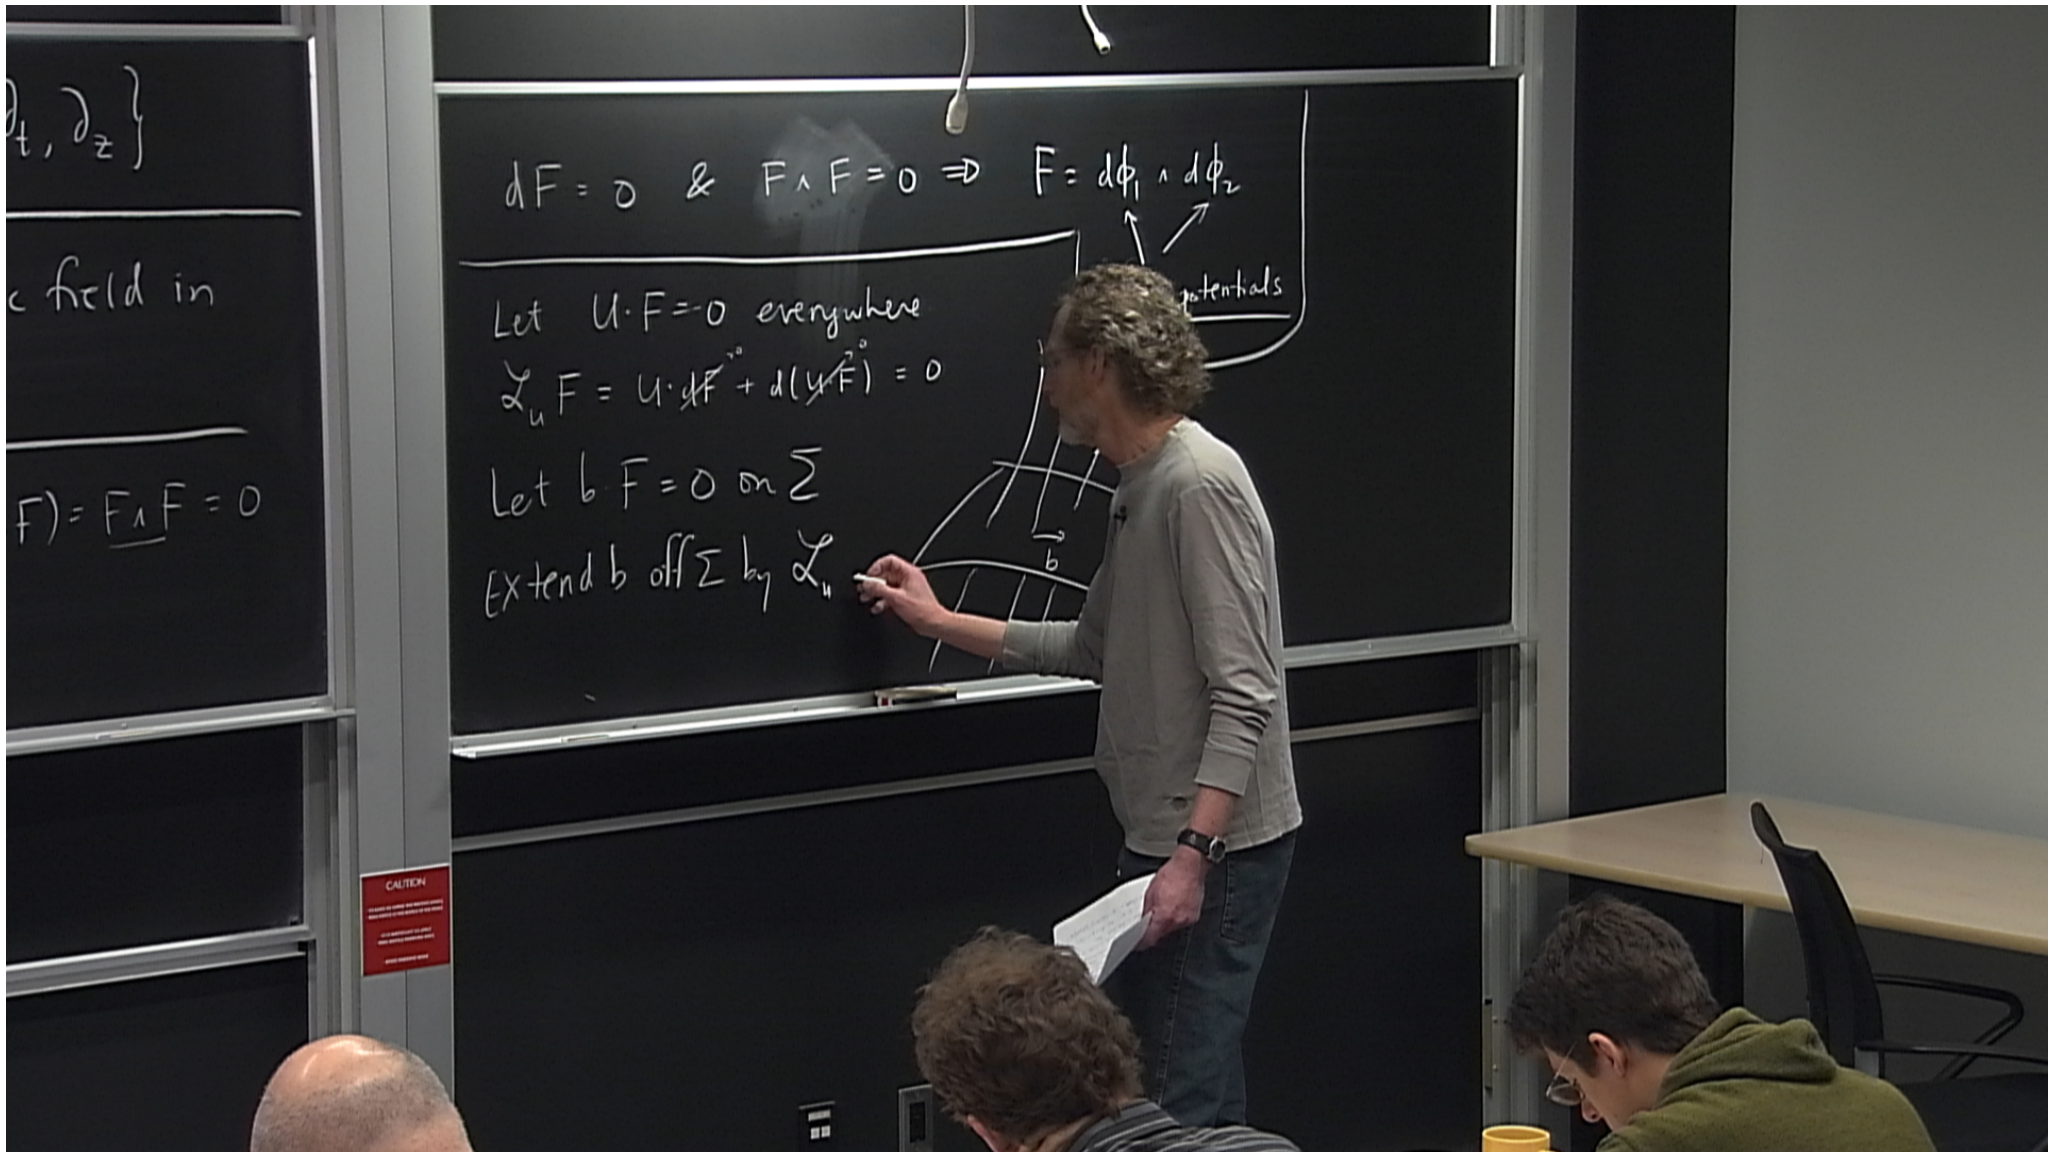 ∂t, ∂z}
c field in
F) = F∧F = 0
dF = 0 & F∧F = 0 ⇒ F = dϕ₁ ∧ dϕ₂
potentials
Let U·F = 0 everywhere
ℒᵤF = U·dF⁰ + d(U·F)⁰ = 0
Let b·F = 0 on Σ
Extend b off Σ by ℒᵤ
b
CAUTION